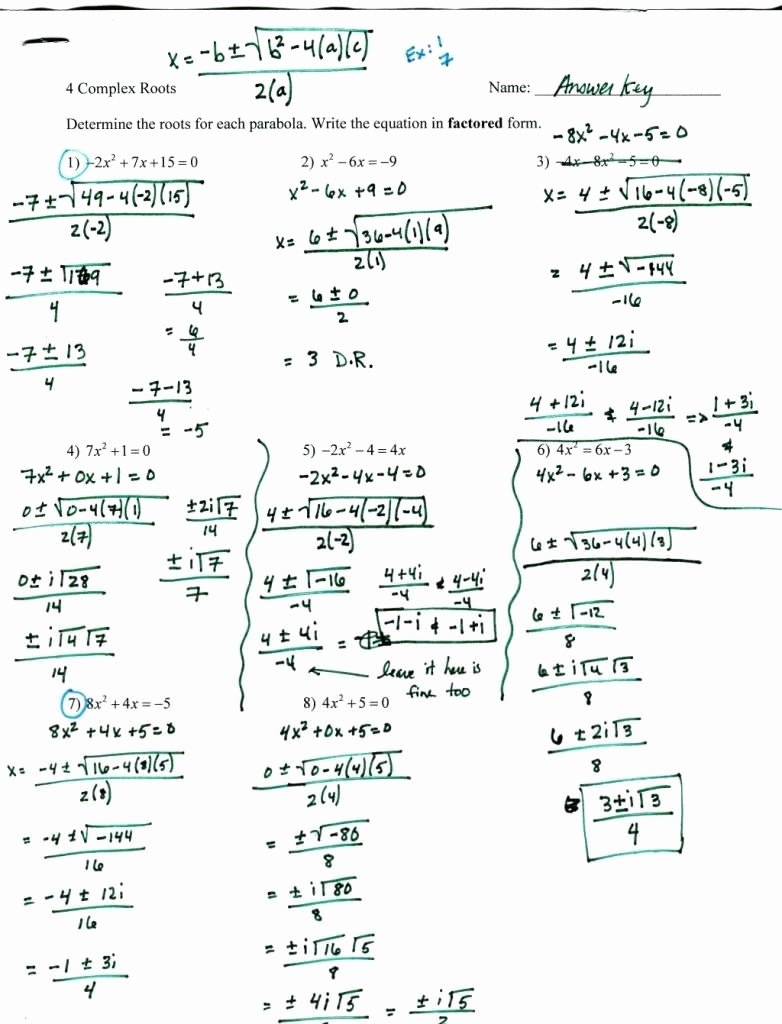 x = -b ± √b² - 4(a)(c) / 2(a)
Ex: 1, 7
4 Complex Roots
Name: Answer Key
Determine the roots for each parabola. Write the equation in factored form.
-8x² - 4x - 5 = 0
1) -2x² + 7x + 15 = 0
-7 ± √49 - 4(-2)(15) / 2(-2)
-7 ± √169 / 4
-7 ± 13 / 4
-7 + 13 / 4
= 6/4
-7 - 13 / 4
= -5
2) x² - 6x = -9
x² - 6x + 9 = 0
x = 6 ± √36 - 4(1)(9) / 2(1)
= 6 ± 0 / 2
= 3 D.R.
3) -4x - 8x² - 5 = 0
x = 4 ± √16 - 4(-8)(-5) / 2(-8)
= 4 ± √-144 / -16
= 4 ± 12i / -16
4 + 12i / -16 & 4 - 12i / -16 => 1 + 3i / -4
&
1 - 3i / -4
4) 7x² + 1 = 0
7x² + 0x + 1 = 0
0 ± √0 - 4(7)(1) / 2(7)
0 ± i√28 / 14
± i√4 √7 / 14
± 2i√7 / 14
± i√7 / 7
5) -2x² - 4 = 4x
-2x² - 4x - 4 = 0
4 ± √16 - 4(-2)(-4) / 2(-2)
4 ± √-16 / -4
4 + 4i / -4 & 4 - 4i / -4
4 ± 4i / -4 =
-1 - i & -1 + i
leave it here is
fine too
6) 4x² = 6x - 3
4x² - 6x + 3 = 0
6 ± √36 - 4(4)(3) / 2(4)
6 ± √-12 / 8
6 ± i√4 √3 / 8
6 ± 2i√3 / 8
3 ± i√3 / 4
7) 8x² + 4x = -5
8x² + 4x + 5 = 0
x = -4 ± √16 - 4(8)(5) / 2(8)
= -4 ± √-144 / 16
= -4 ± 12i / 16
= -1 ± 3i / 4
8) 4x² + 5 = 0
4x² + 0x + 5 = 0
0 ± √0 - 4(4)(5) / 2(4)
= ± √-80 / 8
= ± i√80 / 8
= ± i√16 √5 / 8
= ± 4i√5 = ± i√5